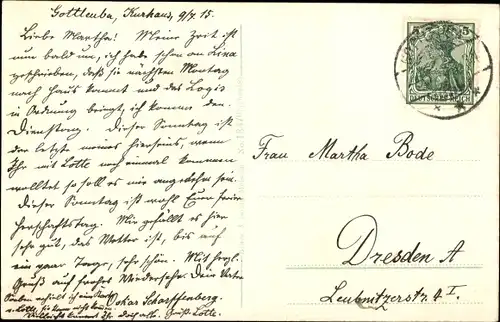 Gottleuba, Kurhaus, 9/7.15.
Liebe Martha! Meine Zeit ist
nun bald um, ich habe schon an Lina
geschrieben, daß sie nächsten Montag
nach Haus kommt und das Logis
in Ordnung bringt, ich komme den
Dienstag. Dieser Sonntag ist
der letzte meines Hierseins, wenn
Ihr mit Lotte noch einmal kommen
wolltet so soll es mir angenehm sein.
Dieser Sonntag ist wohl Euer
Mir gefällt es hier
sehr gut, das Wetter ist, bis auf
ein paar Tage, sehr schön. Mit herzl.
Gruß auf frohes Wiedersehn. Dein Vater
Oskar Scharffenberg.
Soeben erhielt ich
v. Lotte, sie kann nicht kommen
vielleicht kommt Ihr doch all. Gruß Lotte.
Frau Martha Bode
Dresden A
Leubnitzerstr. 4 I.
5 5
DEUTSCHES REICH